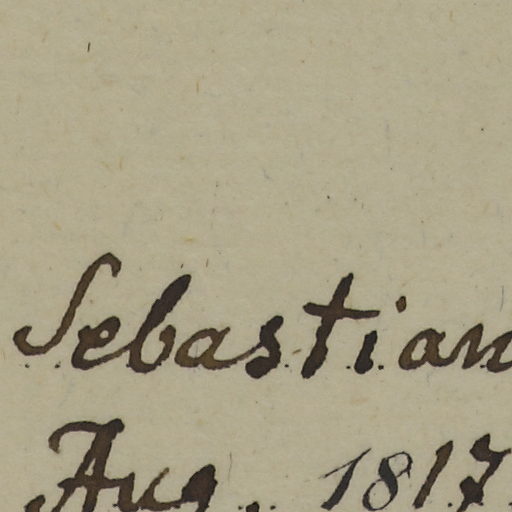 Sebastian
Aug. 1817.